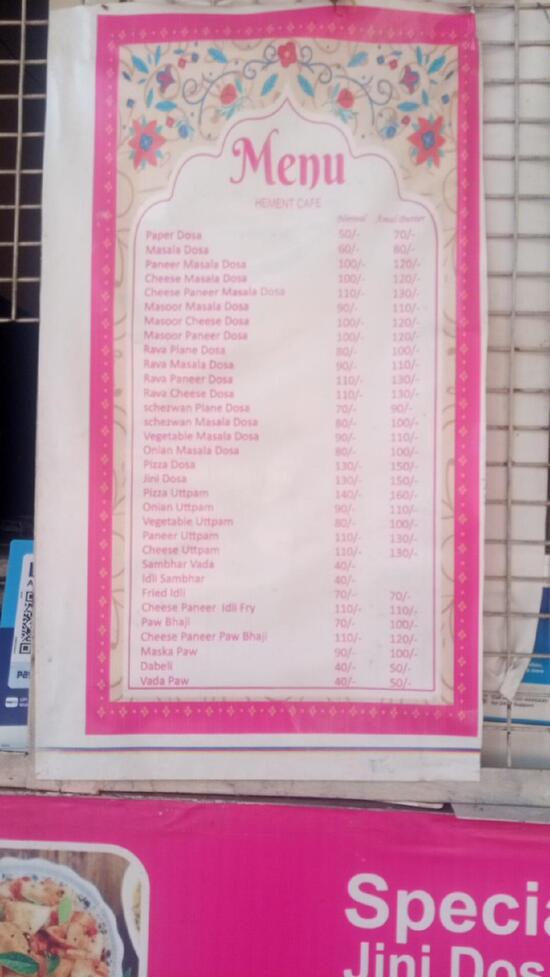 Menu
HEMENT CAFE
Normal Amul Butter
Paper Dosa 50/- 70/-
Masala Dosa 60/- 80/-
Paneer Masala Dosa 100/- 120/-
Cheese Masala Dosa 100/- 120/-
Cheese Paneer Masala Dosa 110/- 130/-
Masoor Masala Dosa 90/- 110/-
Masoor Cheese Dosa 100/- 120/-
Masoor Paneer Dosa 100/- 120/-
Rava Plane Dosa 80/- 100/-
Rava Masala Dosa 90/- 110/-
Rava Paneer Dosa 110/- 130/-
Rava Cheese Dosa 110/- 130/-
schezwan Plane Dosa 70/- 90/-
schezwan Masala Dosa 80/- 100/-
Vegetable Masala Dosa 90/- 110/-
Onian Masala Dosa 80/- 100/-
Pizza Dosa 130/- 150/-
Jini Dosa 130/- 150/-
Pizza Uttpam 140/- 160/-
Onian Uttpam 90/- 110/-
Vegetable Uttpam 80/- 100/-
Paneer Uttpam 110/- 130/-
Cheese Uttpam 110/- 130/-
Sambhar Vada 40/-
Idli Sambhar 40/-
Fried Idli 70/- 70/-
Cheese Paneer Idli Fry 110/- 110/-
Paw Bhaji 70/- 100/-
Cheese Paneer Paw Bhaji 110/- 120/-
Maska Paw 90/- 100/-
Dabeli 40/- 50/-
Vada Paw 40/- 50/-
Specia
Jini Dos